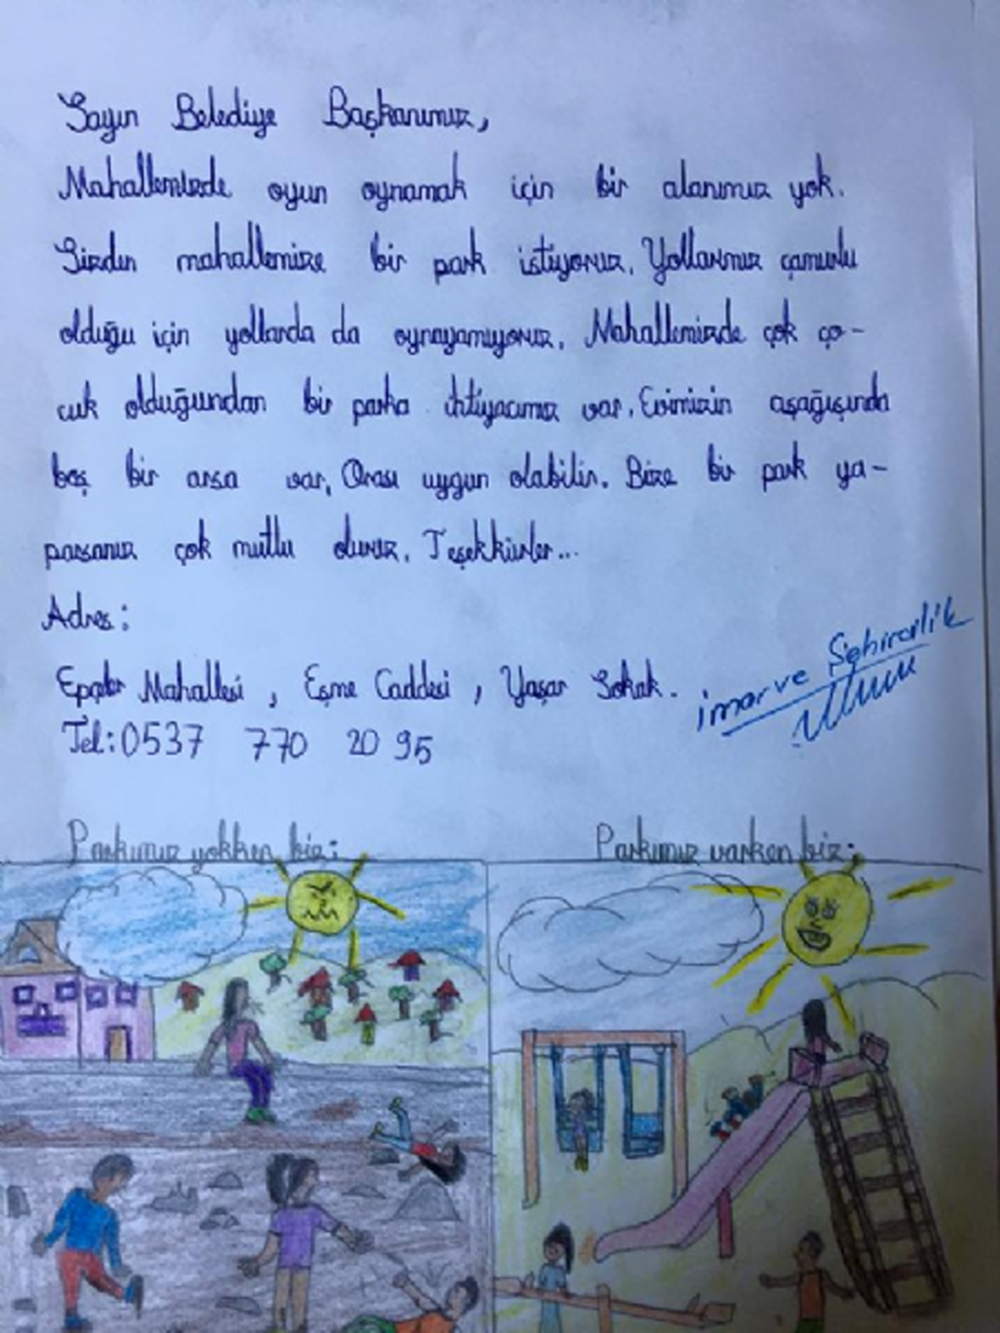 Sayın Belediye Başkanımız,
Mahallemizde oyun oynamak için bir alanımız yok.
Sizden mahallemize bir park istiyoruz. Yollarımız çamurlu
olduğu için yollarda da oynayamıyoruz. Mahallemizde çok ço-
cuk olduğundan bir parka ihtiyacımız var. Evimizin aşağısında
boş bir arsa var. Orası uygun olabilir. Bize bir park ya-
parsanız çok mutlu oluruz. Teşekkürler...
Adres:
Mahallesi, Eşme Caddesi, Yaşar Sokak.
imar ve Şehircilik
Tel: 0537 770 20 95
Parkımız yokken biz:
Parkımız varken biz: